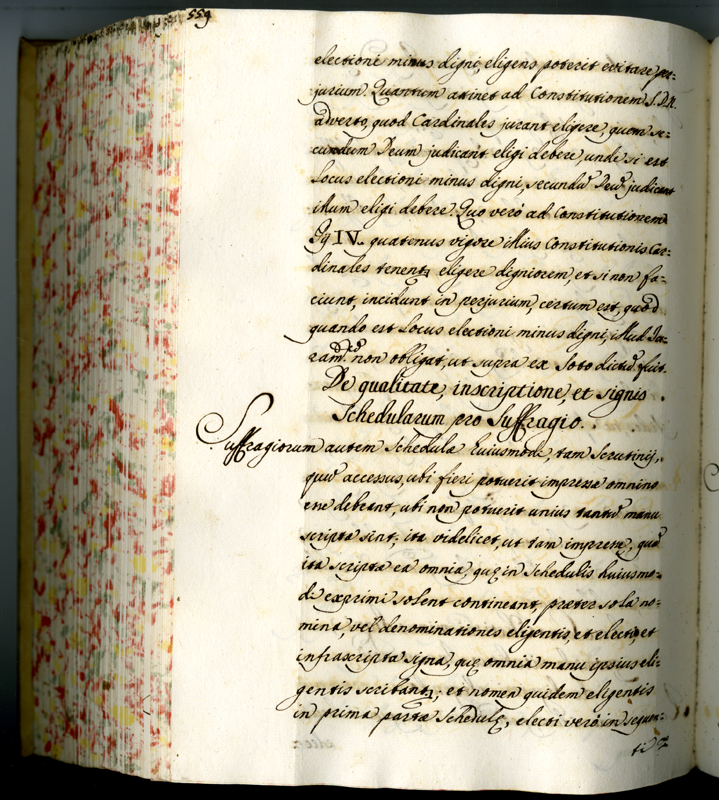 559
electione minus digni, eligens poterit evitare per:
jurium. Quantum attinet ad Constitutionem S.D.N.
adverto, quod Cardinales jurant eligere, quem se:
cundum Deum judicant eligi debere, unde si est
Locus electioni minus digni, secundũ Deũ judicant
illum eligi debere. Quo verò ad Constitutionem
Pij IV. quatenus vigore illius Constitutionis Car:
dinales tenentʒ eligere digniorem, et si non fa:
ciunt, incidunt in perjurium, certum est, quòd
quando est Locus electioni minus digni, illud Ju:
ramtũ non obligat, ut supra ex Soto dictũ fuit.
De qualitate, inscriptione, et signis
Schedularum pro Suffragio.
Suffragiorum autem Schedula huiusmodi, tam Scrutinij,
quã accessus, ubi fieri potuerit impressæ omnino
esse debeant, ubi non potuerit unius tantũ manu
scriptæ sint; ita videlicet, ut tam impressę, quã
ita scriptæ ea omnia, quę in Schedulis huiusmo:
di exprimi solent contineant, preter sola no:
mina, vel denominationes eligentis, et electi, et
infrascripta signa, quę omnia manu ipsius eli:
gentis scribantʒ; et nomen quidem eligentis
in prima parte Schedulę, electi verò in sequen:
ti